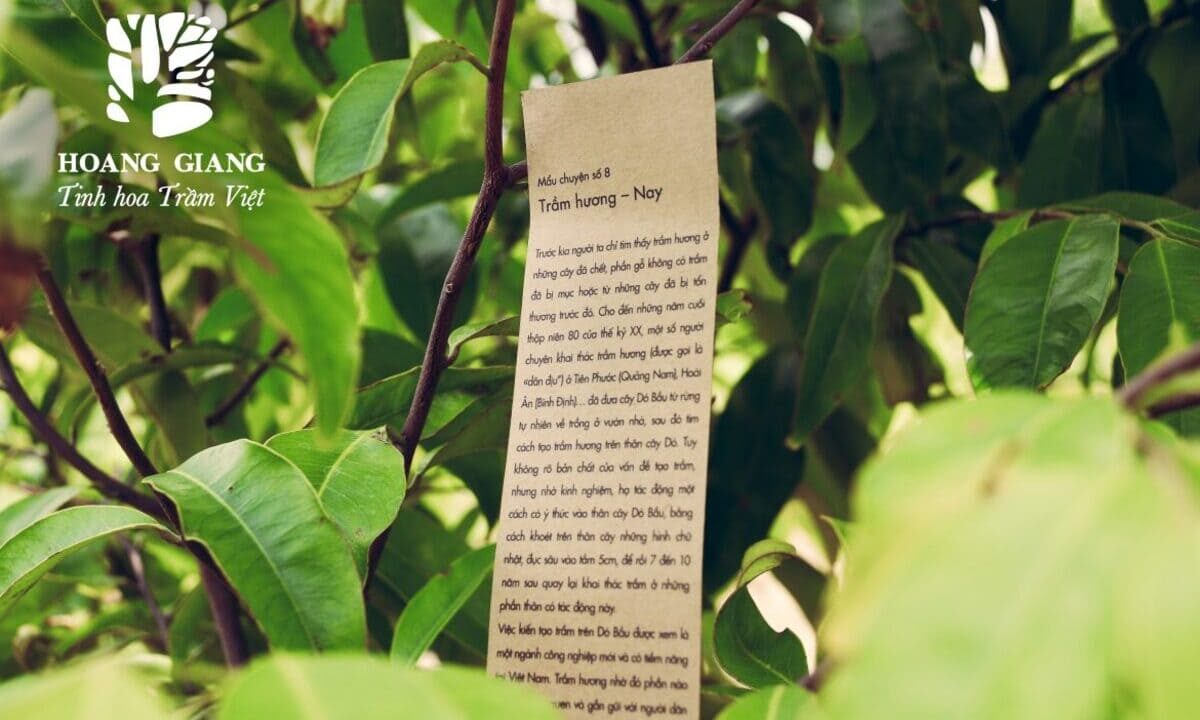 HOANG GIANG
Tinh hoa Trầm Việt
Mẩu chuyện số 8
Trầm hương – Nay
Trước kia người ta chỉ tìm thấy trầm hương ở
những cây đã chết, phần gỗ không có trầm
đã bị mục hoặc từ những cây đã bị tổn
thương trước đó. Cho đến những năm cuối
thập niên 80 của thế kỷ XX, một số người
chuyên khai thác trầm hương (được gọi là
«dân địu") ở Tiên Phước (Quảng Nam), Hoài
Ân (Bình Định)... đã đưa cây Dó Bầu từ rừng
tự nhiên về trồng ở vườn nhà, sau đó tìm
cách tạo trầm hương trên thân cây Dó. Tuy
không rõ bản chất của vấn đề tạo trầm,
nhưng nhờ kinh nghiệm, họ tác động một
cách có ý thức vào thân cây Dó Bầu, bằng
cách khoét trên thân cây những hình chữ
nhật, đục sâu vào tầm 5cm, để rồi 7 đến 10
năm sau quay lại khai thác trầm ở những
phần thân có tác động này.
Việc kiến tạo trầm trên Dó Bầu được xem là
một ngành công nghiệp mới và có tiềm năng
tại Việt Nam. Trầm hương nhờ đó phần nào
quen và gần gũi với người dân